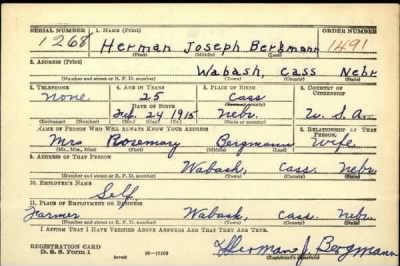 SERIAL NUMBER 1. NAME (Print) ORDER NUMBER
1268 Herman Joseph Bergmann 1491
(First) (Middle) (Last)
2. ADDRESS (Print)
Wabash, Cass Nebr
(Number and street or R. F. D. number) (Town) (County) (State)
3. TELEPHONE 4. AGE IN YEARS 5. PLACE OF BIRTH 6. COUNTRY OF CITIZENSHIP
None 25 Cass
DATE OF BIRTH (Town or county)
Feb. 24 1915 Nebr. U. S. A.
(Exchange) (Number) (Mo.) (Day) (Yr.) (State or country)
7. NAME OF PERSON WHO WILL ALWAYS KNOW YOUR ADDRESS 8. RELATIONSHIP OF THAT PERSON
Mrs Rosemary Bergmann Wife
(Mr., Mrs., Miss) (First) (Middle) (Last)
9. ADDRESS OF THAT PERSON
Wabash, Cass. Nebr.
(Number and street or R. F. D. number) (Town) (County) (State)
10. EMPLOYER'S NAME
Self
11. PLACE OF EMPLOYMENT OR BUSINESS
Farmer Wabash, Cass. Nebr.
(Number and street or R. F. D. number) (Town) (County) (State)
I AFFIRM THAT I HAVE VERIFIED ABOVE ANSWERS AND THAT THEY ARE TRUE.
REGISTRATION CARD
D. S. S. Form 1 Herman J. Bergmann
(over) 16-17105 (Registrant's signature)